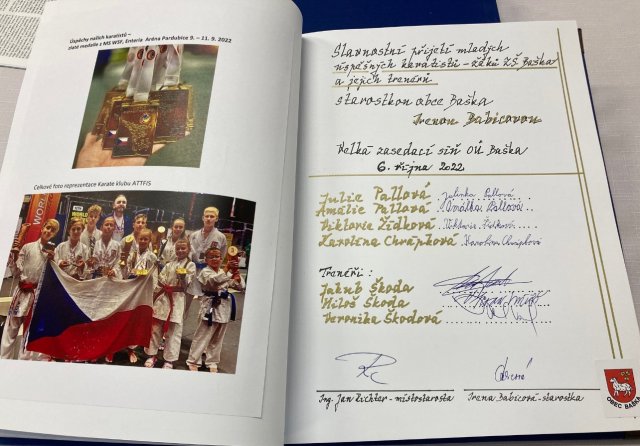 Úspěchy našich karatistů –
zlaté medaile z MS WSF, Enteria Aréna Pardubice 9. – 11. 9. 2022
Celkové foto reprezentace Karate klubu ATTFIS
WORLD
Slavnostní přijetí mladých
úspěšných karatistů - žáků ZŠ Baška
a jejich trenérů
starostkou obce Baška
Irenou Babicovou
Velká zasedací síň OÚ Baška
6. října 2022
Julie Pallová Julinka Pallová
Amálie Pallová Amálka Pallová
Viktorie Žídková Viktorie Žídková
Karolína Chrápková Karolína Chrápková
Trenéři :
Jakub Škoda
Miloš Škoda
Veronika Škodová
Ing. Jan Richter - místostarosta
Irena Babicová - starostka
OBEC BAŠKA